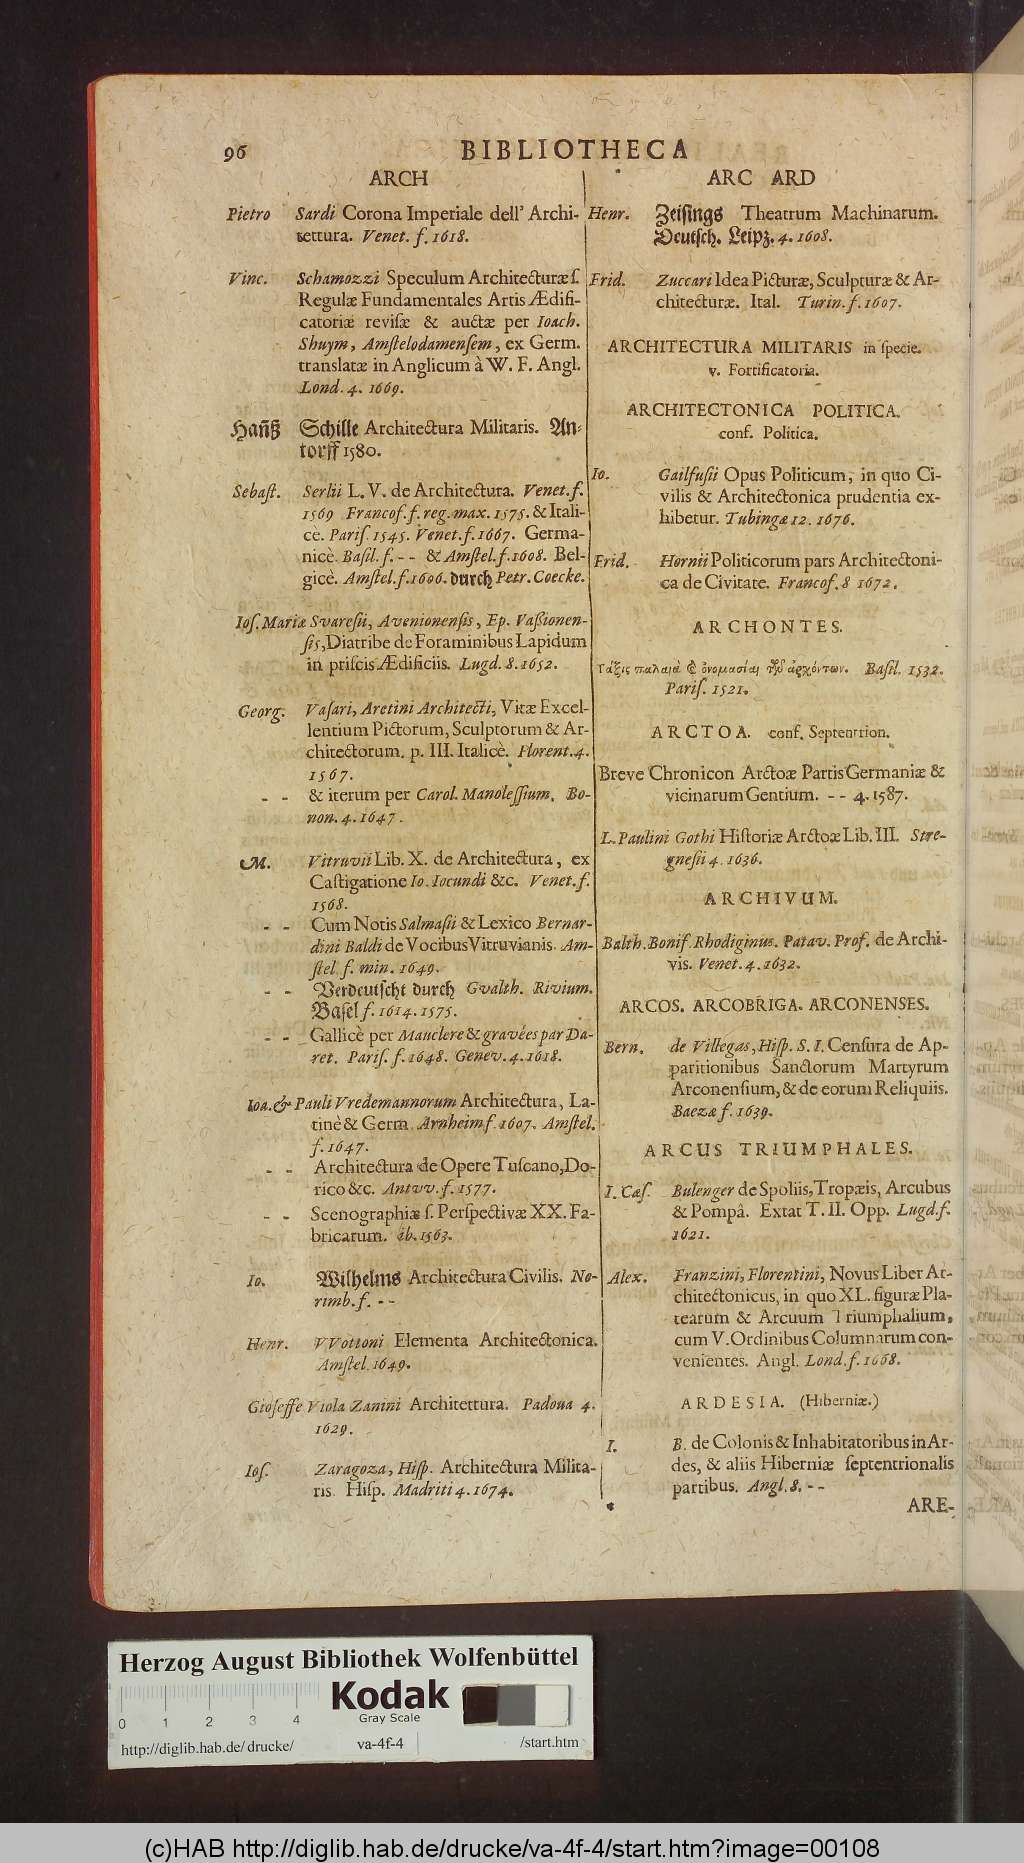 96
BIBLIOTHECA
ARCH
Pietro Sardi Corona Imperiale dell' Archi-
tettura. Venet. f. 1618.
Vinc. Schamozzi Speculum Architecturæ ſ.
Regulæ Fundamentales Artis Ædifi-
catoriæ reviſæ & auctæ per Ioach.
Shuym, Amſtelodamenſem, ex Germ.
translatæ in Anglicum à W. F. Angl.
Lond. 4. 1669.
Hanß Schille Architectura Militaris. An-
torff 1580.
Sebaſt. Serlii L. V. de Architectura. Venet. f.
1569 Francof. f. reg. max. 1575. & Itali-
cè. Pariſ. 1545. Venet. f. 1667. Germa-
nicè. Baſil. f. -- & Amſtel. f. 1608. Bel-
gicè. Amſtel. f. 1606. durch Petr. Coecke.
Ioſ. Mariæ Svareſii, Avenionenſis, Ep. Vaſſionen-
ſis, Diatribe de Foraminibus Lapidum
in priſcis Ædificiis. Lugd. 8. 1652.
Georg. Vaſari, Aretini Architecti, Vitæ Excel-
lentium Pictorum, Sculptorum & Ar-
chitectorum. p. III. Italicè. Florent. 4.
1567.
-- & iterum per Carol. Manoleſſium. Bo-
non. 4. 1647.
M. Vitruvii Lib. X. de Architectura, ex
Caſtigatione Io. Iocundi &c. Venet. f.
1568.
-- Cum Notis Salmaſii & Lexico Bernar-
dini Baldi de Vocibus Vitruvianis. Am-
ſtel. f. min. 1649.
-- Verdeutſcht durch Gvalth. Rivium.
Baſel f. 1614. 1575.
-- Gallicè per Mauclere & gravées par Da-
ret. Pariſ. f. 1648. Genev. 4. 1618.
Ioa. & Pauli Vredemannorum Architectura, La-
tinè & Germ. Arnheim f. 1607. Amſtel.
f. 1647.
-- Architectura de Opere Tuſcano, Do-
rico &c. Antvv. f. 1577.
-- Scenographiæ ſ. Perſpectivæ XX. Fa-
bricarum. ib. 1563.
Io. Wilhelms Architectura Civilis. No-
rimb. f. --
Henr. VVottoni Elementa Architectonica.
Amſtel. 1649.
Gioſeffe Viola Zanini Architettura. Padoua 4.
1629.
Ioſ. Zaragoza, Hiſp. Architectura Milita-
ris. Hiſp. Madriti 4. 1674.
ARC ARD
Henr. Zeiſings Theatrum Machinarum.
Deutſch. Leipz. 4. 1608.
Frid. Zuccari Idea Picturæ, Sculpturæ & Ar-
chitecturæ. Ital. Turin. f. 1607.
ARCHITECTURA MILITARIS in ſpecie.
v. Fortificatoria.
ARCHITECTONICA POLITICA.
conf. Politica.
Io. Gailfuſii Opus Politicum, in quo Ci-
vilis & Architectonica prudentia ex-
hibetur. Tubingæ 12. 1676.
Frid. Hornii Politicorum pars Architectoni-
ca de Civitate. Francof. 8 1672.
ARCHONTES.
Τάξις παλαιὰ & ὀνομασίαι τῶν ἀρχόντων. Baſil. 1532.
Pariſ. 1521.
ARCTOA. conf. Septentrion.
Breve Chronicon Arctoæ Partis Germaniæ &
vicinarum Gentium. -- 4. 1587.
L. Paulini Gothi Hiſtoriæ Arctoæ Lib. III. Stre-
gneſii 4. 1636.
ARCHIVUM.
Balth. Bonif. Rhodiginus. Patav. Prof. de Archi-
vis. Venet. 4. 1632.
ARCOS. ARCOBRIGA. ARCONENSES.
Bern. de Villegas, Hiſp. S. I. Cenſura de Ap-
paritionibus Sanctorum Martyrum
Arconenſium, & de eorum Reliquiis.
Baezæ f. 1639.
ARCUS TRIUMPHALES.
I. Cæſ. Bulenger de Spoliis, Tropæis, Arcubus
& Pompâ. Extat T. II. Opp. Lugd. f.
1621.
Alex. Franzini, Florentini, Novus Liber Ar-
chitectonicus, in quo XL. figuræ Pla-
tearum & Arcuum Triumphalium,
cum V. Ordinibus Columnarum con-
venientes. Angl. Lond. f. 1668.
ARDESIA. (Hiberniæ.)
I. B. de Colonis & Inhabitatoribus in Ar-
des, & aliis Hiberniæ ſeptentrionalis
partibus. Angl. 8. --
ARE-
Herzog August Bibliothek Wolfenbüttel
Kodak
Gray Scale
0 1 2 3 4
http://diglib.hab.de/drucke/ va-4f-4 /start.htm
(c)HAB http://diglib.hab.de/drucke/va-4f-4/start.htm?image=00108